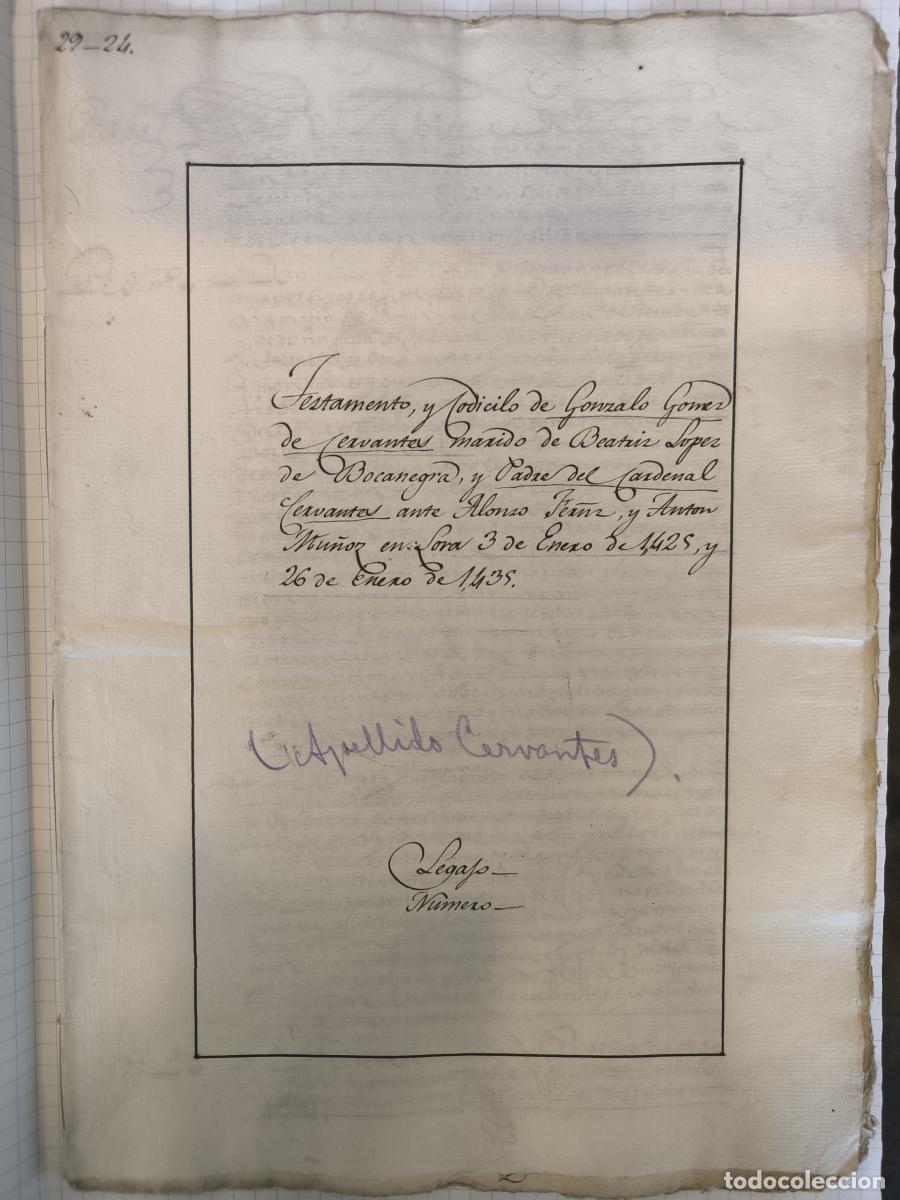 29-24.
Testamento, y Codicilo de Gonzalo Gomez
de Cervantes marido de Beatriz Lopez
de Bocanegra, y Padre del Cardenal
Cervantes ante Alonso Ferñz, y Anton
Muñoz en Lora 3 de Enero de 1,425, y
26 de Enero de 1,435.
(Apellido Cervantes).
Legajo
Número
todocoleccion